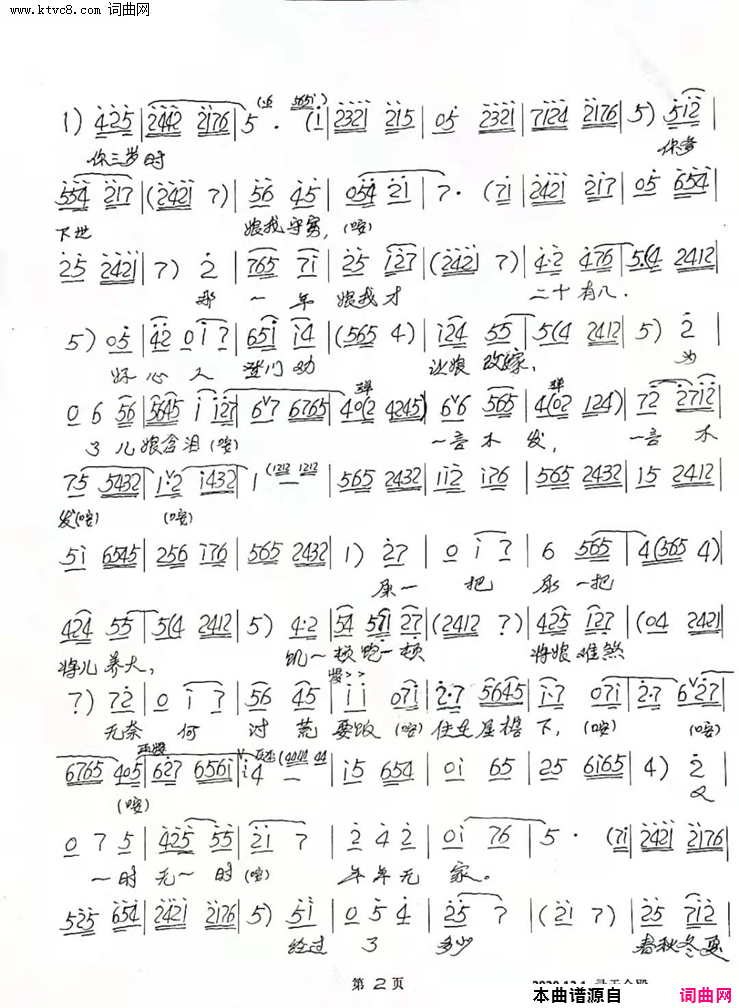 www.ktvc8.com 词曲网
1) 425 | 2442 2176 | 5 · (i | 2321 215 | 05 2321 | 7124 2176 | 5) 512 |
你三岁时 你爹
554 217 | (2421 7) | 56 45 | 054 21 | 7 · (7i | 2421 217 | 05 654 |
下世 娘我守寡, (咹)
25 2421 | 7) 2 | 765 7i | 25 i27 | (2421 7) | 4·2 476 | 5·(4 2412 |
那 一 年 娘我才 二十有八.
5) 05 | 42 0i7 | 65i i4 | (565 4) | i24 55 | 5(4 2412 | 5) 2 |
好心人 登门劝 让娘改嫁, 为
06 56 | 5645 i i27 | 67 6765 | 40(2 4245) | 66 565 | 4(02 124) | 72 2712 |
了儿娘含泪(咹) 一言不发, 一言不
75 5432 | 1·2 i432 | 1 (1212 1212 | 565 2432 | 112 i76 | 565 2432 | 15 2412 |
发(咹) (咹)
5i 6545 | 256 i76 | 565 2432 | 1) 27 | 0i7 | 6 565 | 4(565 4) |
尿一 把 尿一把
424 55 | 5(4 2412 | 5) 4·2 | 54 571 27 | (2412 7) | 425 127 | (04 2421 |
将儿养大, 饥一顿饱一顿 将娘难煞
7) 72 | 0i7 | 56 45 | ii 07i | 2·7 5645 | i·7 07i | 2·7 627 |
无奈何 讨荒要饭(咹)住在屋檐下, (咹) (咹)
6765 405 | 627 656i | 4 — | i5 654 | 0i 65 | 25 6i65 | 4) 2 |
(咹) 又
075 | 425 55 | 21 7 | 242 | 0i 76 | 5 · (7i | 2421 2176 |
一时无一时(咹) 年年无家。
525 654 | 2421 2176 | 5) 5i | 054 | 25 7 | (21 7) | 25 712 |
经过了 多少 春秋冬夏
第2页
本曲谱源自 词曲网